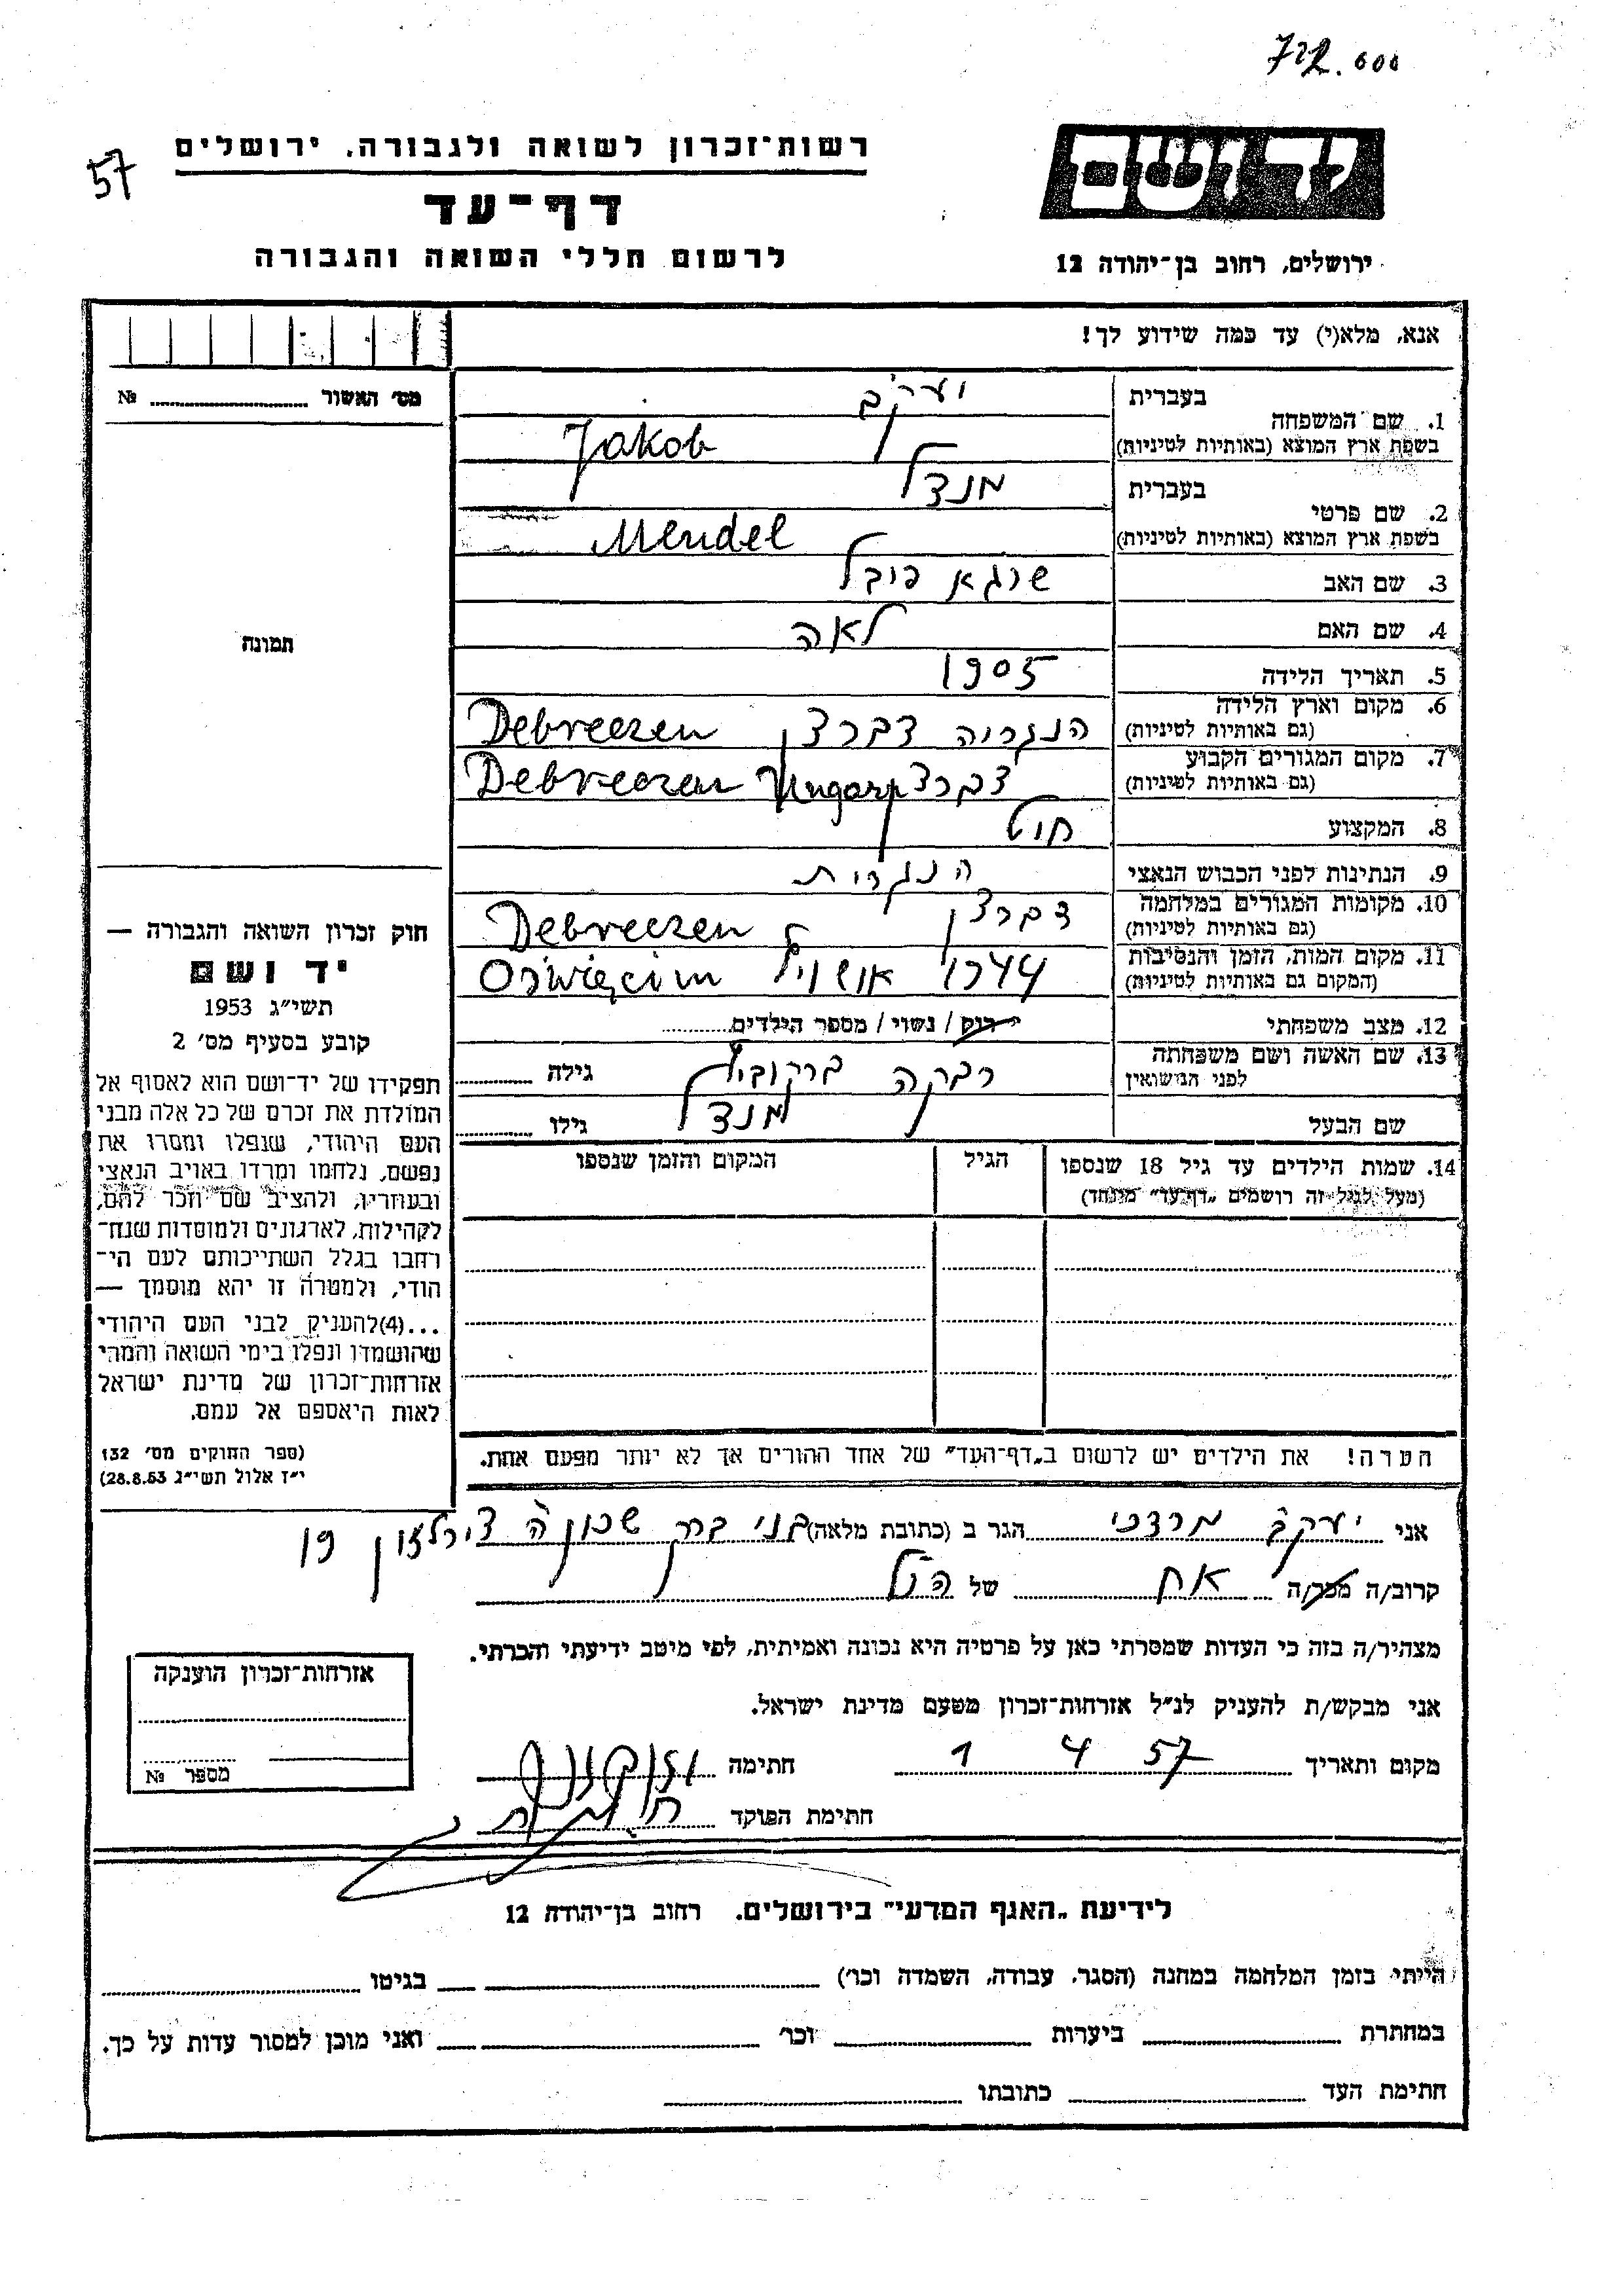 722.000
57
רשות־זכרון לשואה ולגבורה, ירושלים
דף־עד
לרשום חללי השואה והגבורה
יד ושם
ירושלים, רחוב בן־יהודה 12
אנא, מלא(י) עד כמה שידוע לך!
מס׳ האשור № 
תמונה
בעברית יעקב
1. שם המשפחה
בשפת ארץ המוצא (באותיות לטיניות) Jakob
בעברית מנדל
2. שם פרטי
בשפת ארץ המוצא (באותיות לטיניות) Mendel
3. שם האב שרגא פובל
4. שם האם לאה
5. תאריך הלידה 1905
6. מקום וארץ הלידה
(גם באותיות לטיניות) הונגריה דברצן Debreczen
7. מקום המגורים הקבוע
(גם באותיות לטיניות) דברצן Debreczen Ungarn
8. המקצוע
9. הנתינות לפני הכבוש הנאצי הונגרית
10. מקומות המגורים במלחמה
(גם באותיות לטיניות) דברצן Debreczen
11. מקום המות, הזמן והנסיבות
(המקום גם באותיות לטיניות) 1944 Oświęcim
12. מצב משפחתי רוק / נשוי / מספר הילדים
13. שם האשה ושם משפחתה
לפני הנישואין רבקה ברקוביץ גילה
שם הבעל מנדל גילו
14. שמות הילדים עד גיל 18 שנספו הגיל המקום והזמן שנספו
(מעל לגיל זה רושמים „דף־עד״ מיוחד)
הערה! את הילדים יש לרשום ב„דף־העד״ של אחד ההורים אך לא יותר מפעם אחת.
חוק זכרון השואה והגבורה —
יד ושם
תשי״ג 1953
קובע בסעיף מס׳ 2
תפקידו של יד־ושם הוא לאסוף אל
המולדת את זכרם של כל אלה מבני
העם היהודי, שנפלו ומסרו את
נפשם, נלחמו ומרדו באויב הנאצי
ובעוזריו, ולהציב שם וזכר להם,
לקהילות, לארגונים ולמוסדות שנח־
רחבו בגלל השתייכותם לעם הי־
הודי, ולמטרה זו יהא מוסמך —
...(4) להעניק לבני העם היהודי
שהושמדו ונפלו בימי השואה והמרי
אזרחות־זכרון של מדינת ישראל
לאות היאספם אל עמם.
(ספר החוקים מס׳ 132
י״ז אלול תשי״ג 28.8.53)
אני יעקב מרדכי הגר ב (כתובת מלאה) בני ברק 19
קרוב/ה מכר/ה אח של הנ״ל
מצהיר/ה בזה כי העדות שמסרתי כאן על פרטיה היא נכונה ואמיתית, לפי מיטב ידיעתי והכרתי.
אני מבקש/ת להעניק לנ״ל אזרחות־זכרון מטעם מדינת ישראל.
מקום ותאריך 1 4 57 חתימה
חתימת הפוקד
אזרחות־זכרון הוענקה
מספר №
לידיעת „האגף המדעי״ בירושלים, רחוב בן־יהודה 12
הייתי בזמן המלחמה במחנה (הסגר, עבודה, השמדה וכו׳) בגיטו
במחתרת ביערות וכו׳ ואני מוכן למסור עדות על כך.
חתימת העד כתובתו